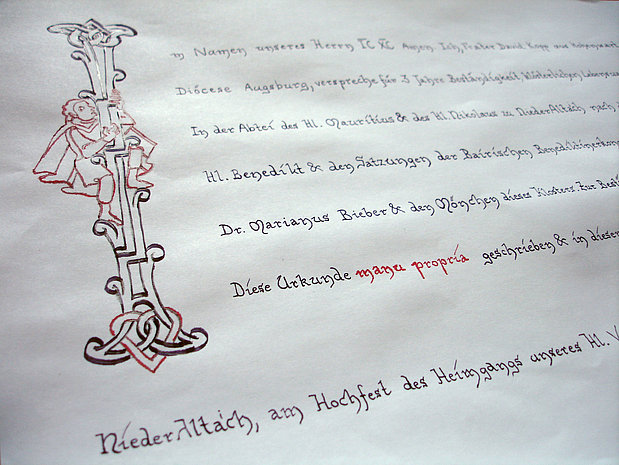 m Namen unseres Herrn IC XC Amen Ich, Frater David Kopp aus Hohenwart
Diöcese Augsburg, verspreche für 3 Jahre Beständigkeit Klösterlichen Lebens
In der Abtei des Hl. Mauritius & des Hl. Nikolaus zu NiederAltaich nach
Hl. Benedikt & den Satzungen der Bairischen Benediktinerkon
Dr. Marianus Bieber & den Mönchen dieses Klosters. Zur
Diese Urkunde manu propria geschrieben & in dieser
NiederAltaich, am Hochfest des Heimgangs unseres Hl. V